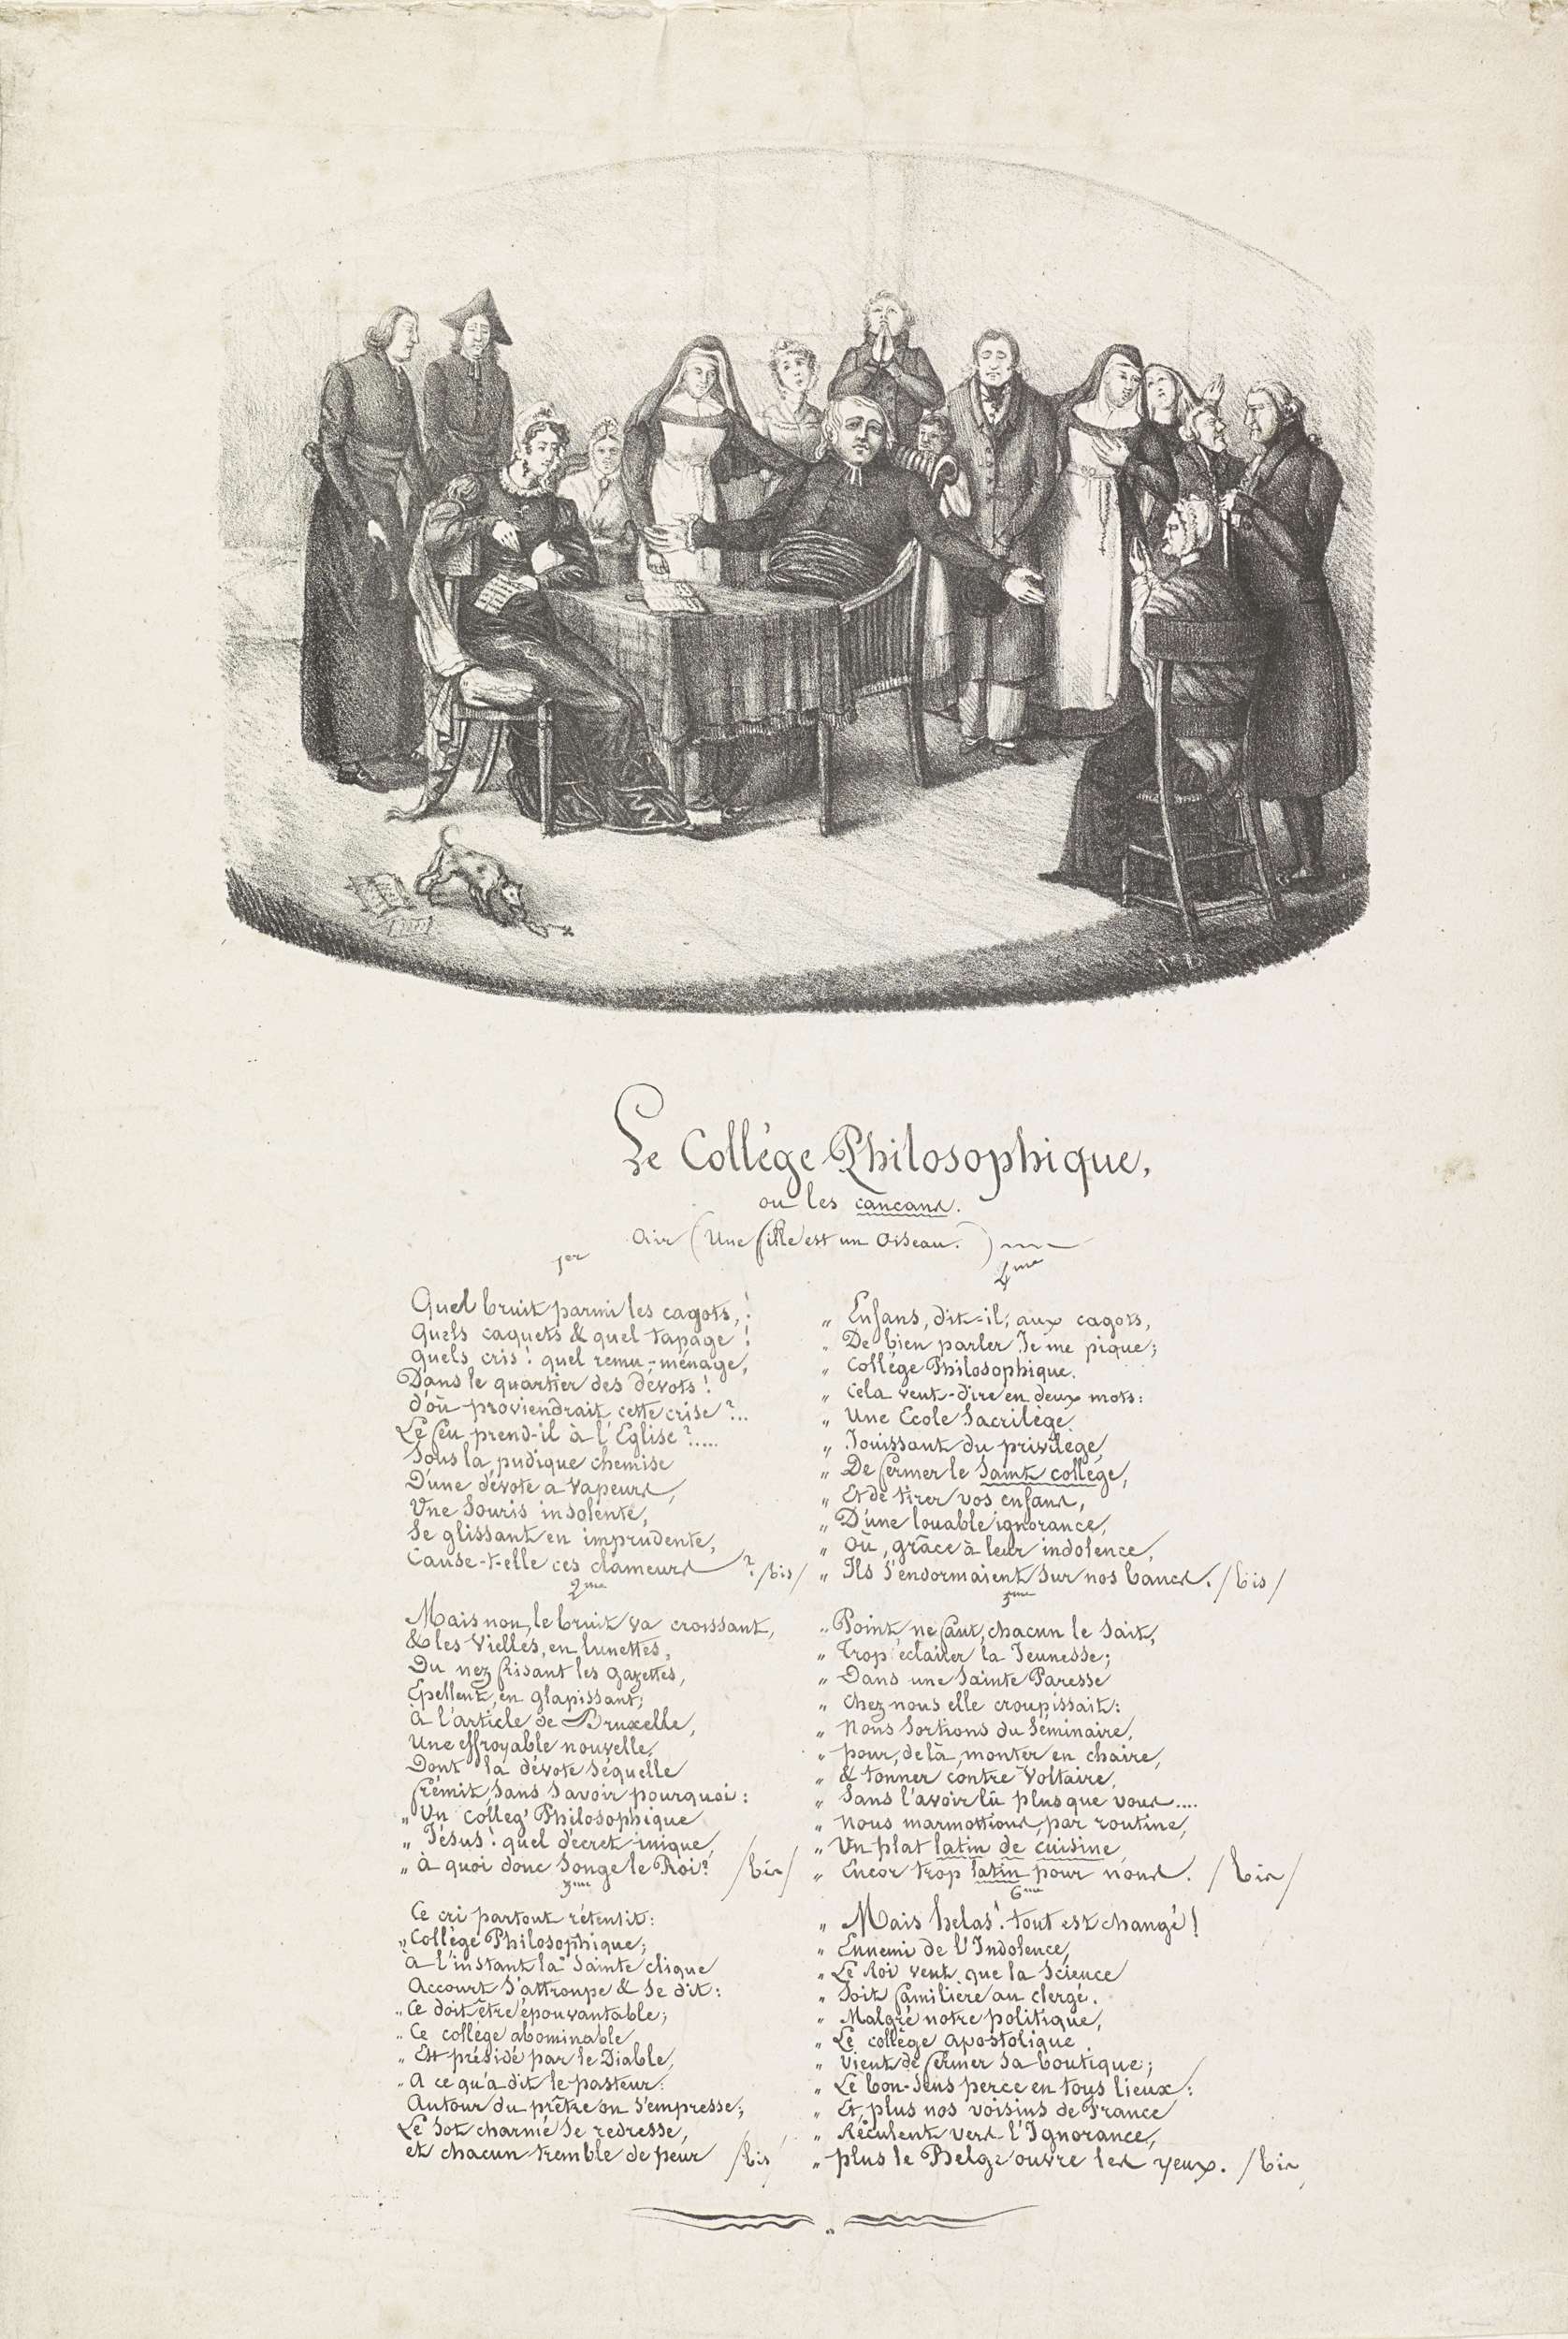 Le Collége Philosophique,
ou les cancans.
Air (Une fille est un Oiseau.)
1er
Quel bruit parmi les cagots,!
Quels caquets & quel tapage!
Quels cris! quel remu-ménage,
Dans le quartier des dévots!
d'où proviendrait cette crise?...
Le feu prend-il à l'Eglise?.....
Sous la pudique chemise
D'une dévote a vapeurs,
Une Souris insolente,
Se glissant en imprudente,
Cause-t-elle ces clameurs? /bis/
2me
Mais non, le bruit va croissant,
& les Vielles, en lunettes,
Du nez frisant les gazettes,
Epellent, en glapissant;
à l'article de Bruxelle,
Une effroyable nouvelle,
Dont la dévote Séquelle
frémit, Sans Savoir pourquoi:
„ Un colleg' Philosophique
„ Jésus! quel décret inique,
„ à quoi donc Songe le Roi? /bis/
3me
Ce cri partout rétentit:
„ Collège Philosophique;
à l'instant la Sainte clique
Accourt S'attroupe & Se dit:
„ Ce doit être épouvantable;
„ Ce collège abominable
„ Est présidé par le Diable,
„ A ce qu'a dit le pasteur:
Autour du prêtre on S'empresse;
Le Sot charmé Se redresse,
et chacun tremble de peur /bis/
4me
„ Enfans, dit-il, aux cagots,
„ De bien parler Je me pique;
„ Collége Philosophique.
„ Cela veut-dire en deux mots:
„ Une Ecole Sacrilège
„ Jouissant du privilège,
„ De fermer le Saint collége,
„ Et de tirer vos enfans,
„ D'une louable ignorance,
„ Où, grâce à leur indolence,
„ Ils S'endormaient Sur nos bancs. /bis/
5me
„ Point ne faut, chacun le Sait,
„ Trop éclairer la Jeunesse;
„ Dans une Sainte Paresse
„ Chez nous elle croupissait:
„ Nous Sortions du Séminaire,
„ pour, de là, monter en chaire,
„ & tonner contre Voltaire,
„ Sans l'avoir lû plus que vous....
„ Nous marmottions, par routine,
„ Un plat latin de cuisine,
„ Encor trop latin pour nous. /bis/
6me
„ Mais helas! tout est changé!
„ Ennemi de l'Indolence,
„ Le Roi veut que la Science
„ Soit familière au clergé.
„ Malgré notre politique,
„ Le collège apostolique
„ Vient de fermer Sa boutique;
„ Le bon-Sens perce en tous lieux:
„ Et, plus nos voisins de France
„ Réculent vers l'Ignorance,
„ plus le Belge ouvre les yeux. /bis